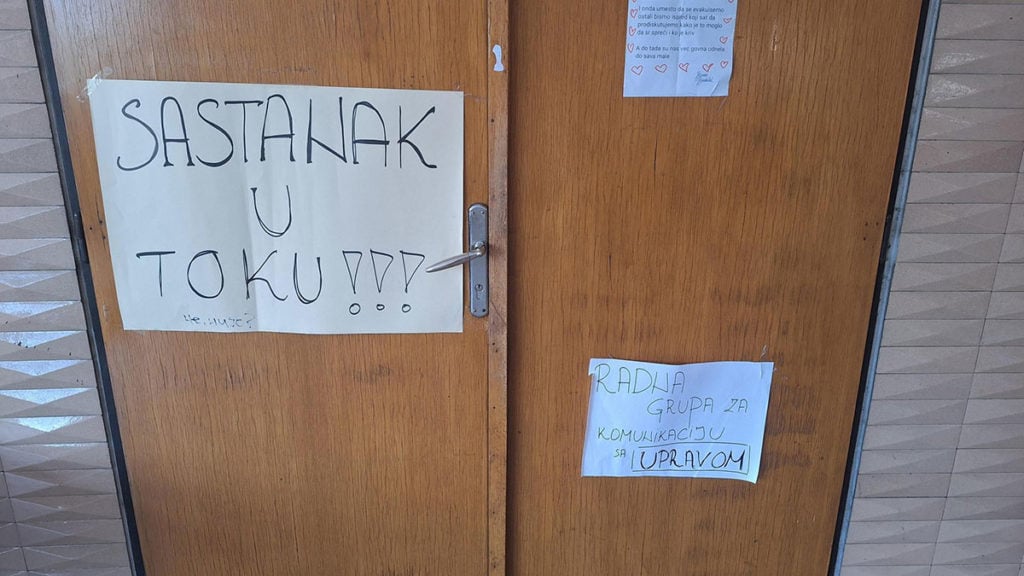 SASTANAK
U
TOKU !!!
I onda umesto da se evakuišemo
ostali bismo ispred koji sat da
prodiskutujemo kako je to moglo
da se spreči i ko je kriv
A do tada su nas već govna odnela
do sava male
RADNA
GRUPA ZA
KOMUNIKACIJU
SA UPRAVOM